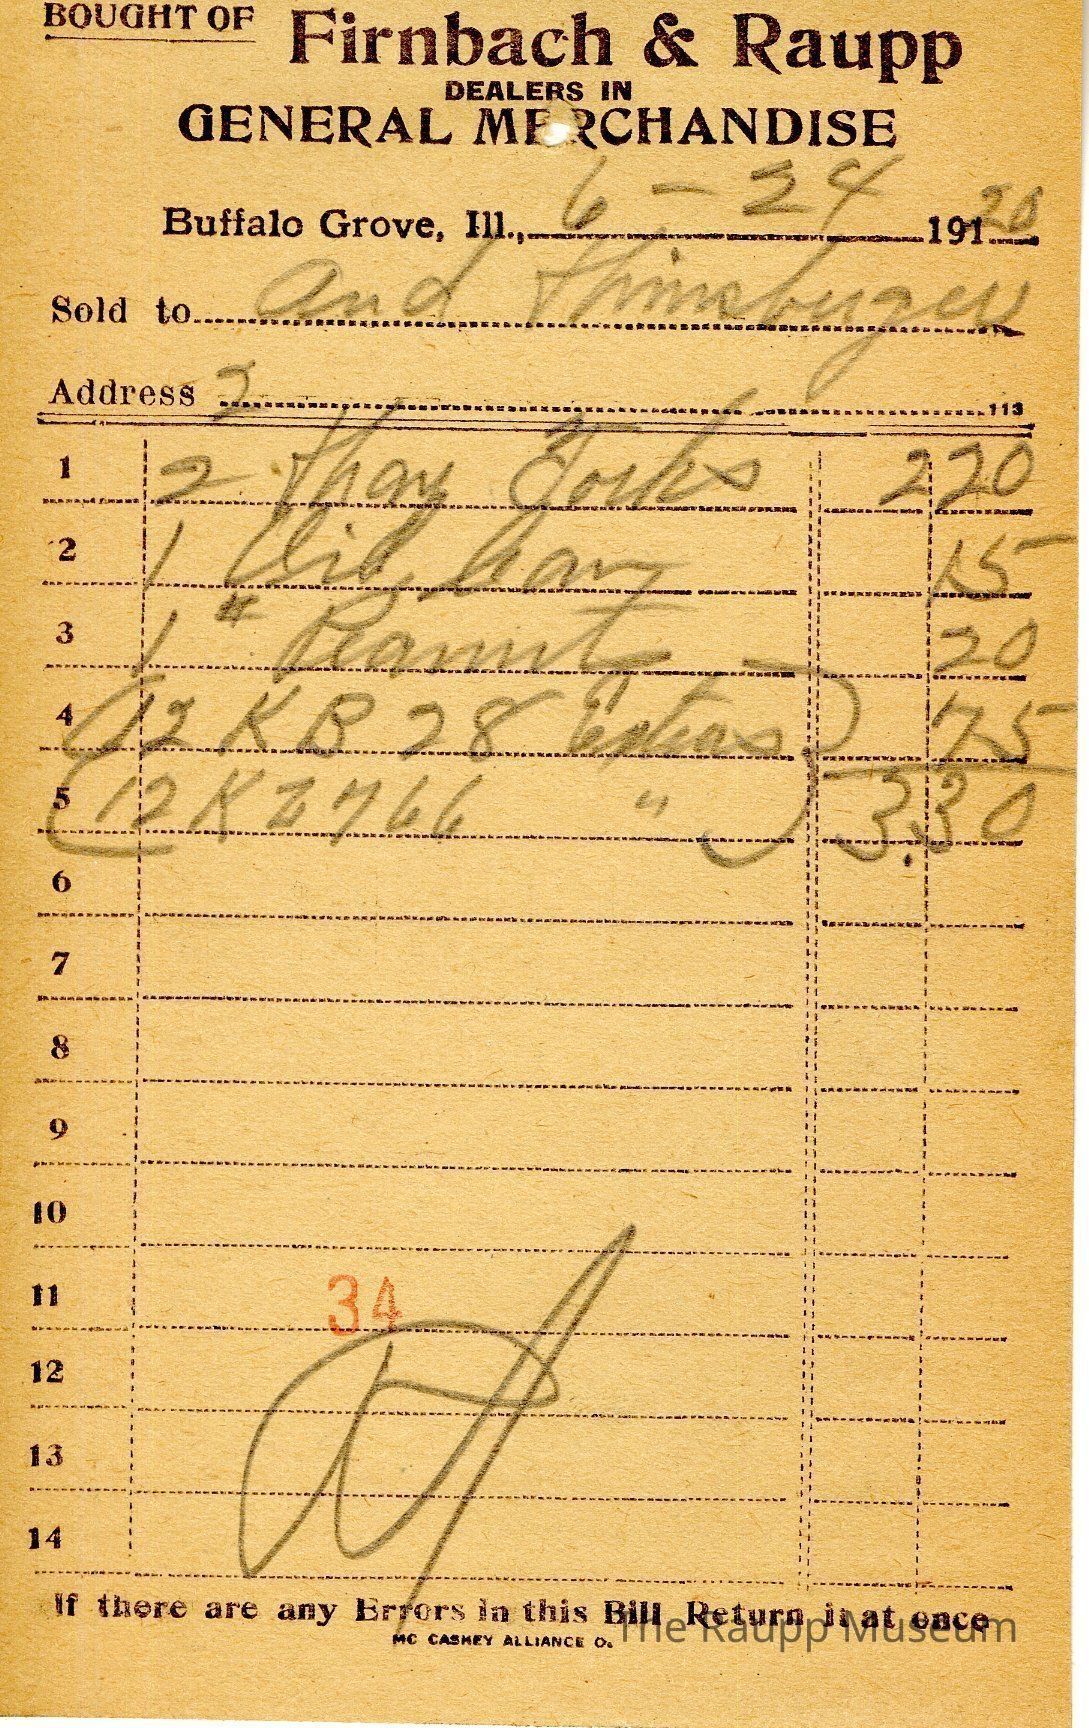 BOUGHT OF Firnbach & Raupp
DEALERS IN
GENERAL MERCHANDISE
Buffalo Grove, Ill., 6 - 24 191 20
Sold to And
Address 113
1 2 Forks 2 20
2 1 15
3 1 # Peanut 20
4 12 K B 28 Extras 75
5 12 K Z 766 " 3.30
6
7
8
9
10
11
34
12
13
14
If there are any Errors in this Bill Return it at once
MC CASKEY ALLIANCE O.
The Raupp Museum